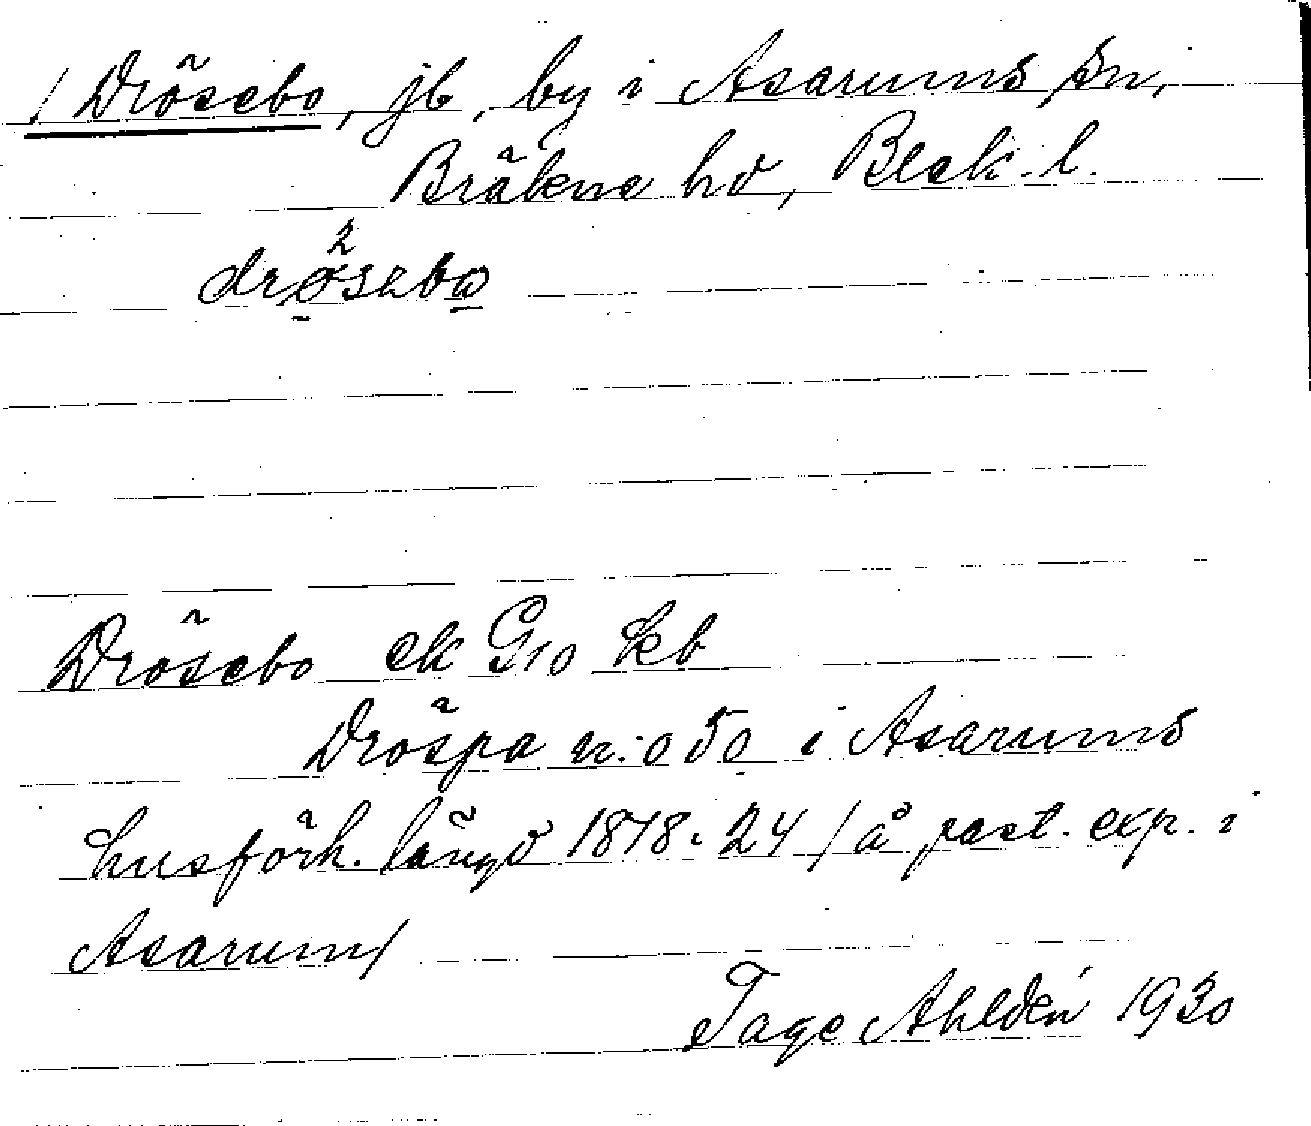 / Drösebo, jb, by i Asarums sn,
Bräkne hd, Blek. l.
drösebo
Drösebo ek G10 Skb
Dröspa n:o 50 i Asarums
husförh. längd 1818-24 / å past. exp. i
Asarum /
Tage Ahldén 1930